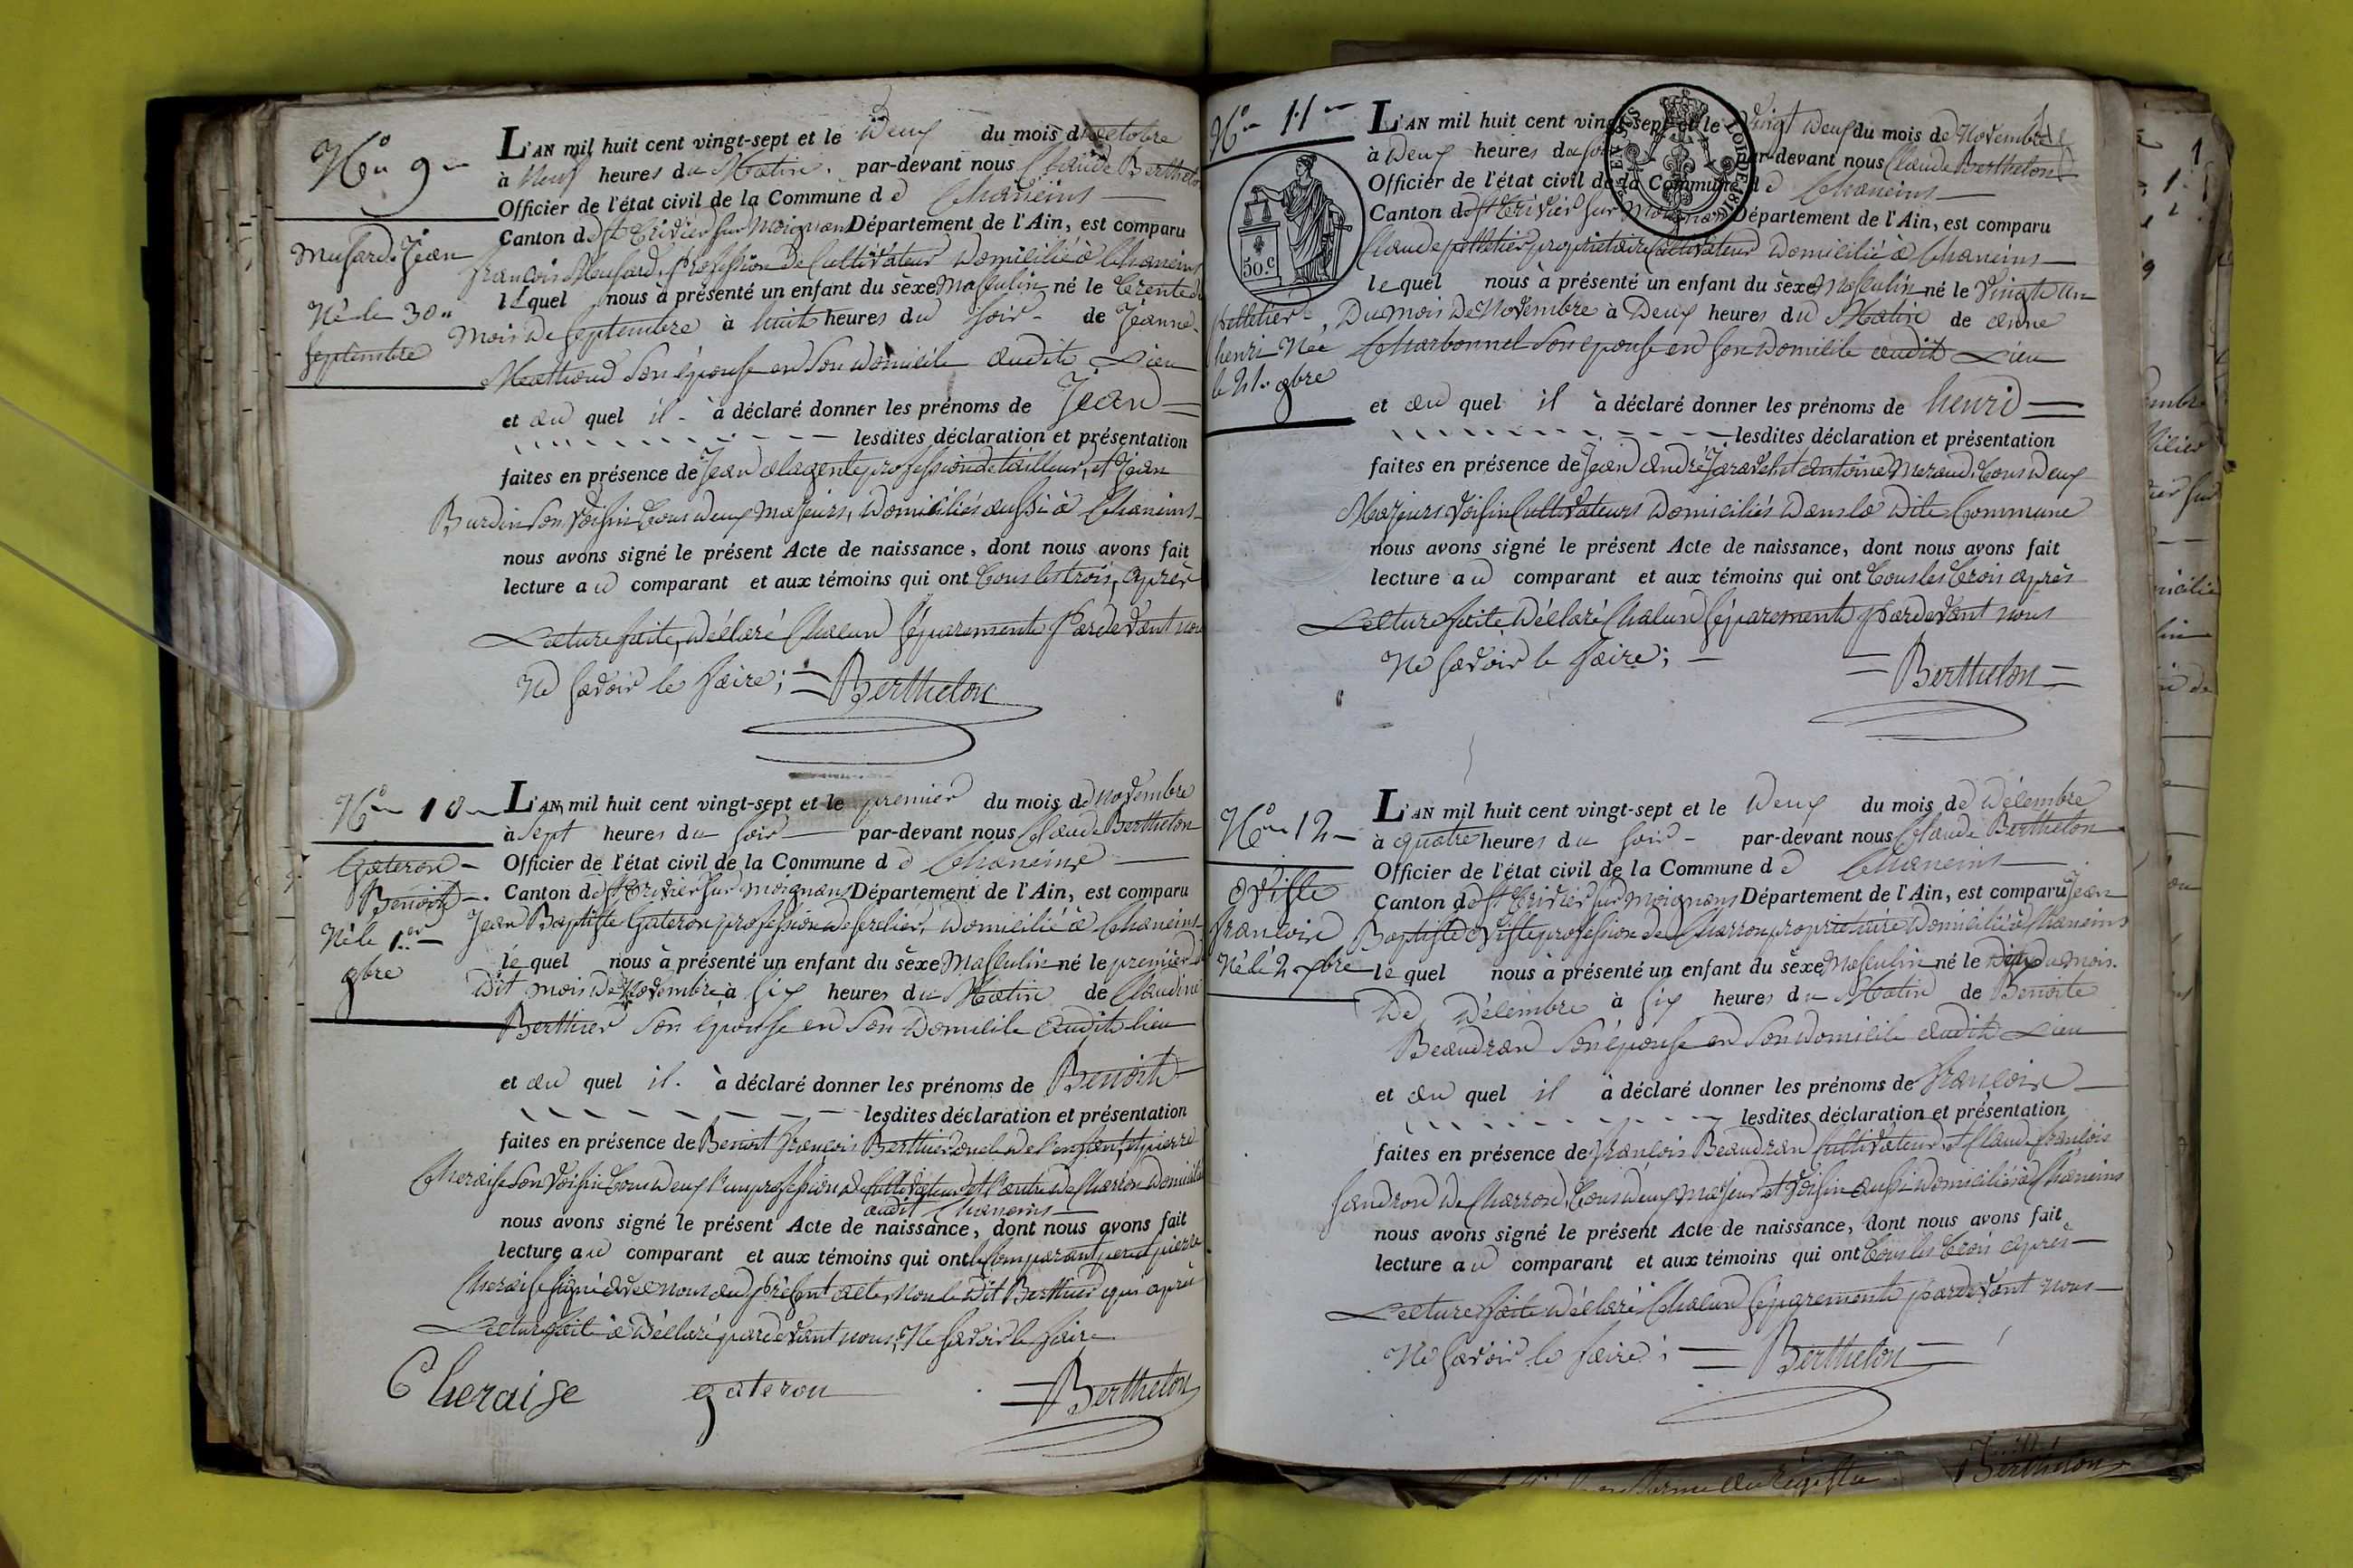 N° 9
Musard Jean
Né le 30
Septembre
L'AN mil huit cent vingt-sept et le Deux du mois d'octobre
à Neuf heures du Matin par-devant nous Claude Berthelon
Officier de l'état civil de la Commune de Chaneins
Canton de St Trivier sur Moignans Département de l'Ain, est comparu
françois Musard, profession de Cultivateur Domicilié à Chaneins
lequel nous à présenté un enfant du sèxe Masculin né le trente du
Mois de Septembre à huit heures du soir de Jeanne
son épouse en son domicile audit Lieu
et au quel il à déclaré donner les prénoms de Jean
lesdites déclaration et présentation
faites en présence de Jean profession de tailleur, et Jean
Burdin son voisin tous deux majeurs, Domiciliés aussi à Chaneins
nous avons signé le présent Acte de naissance, dont nous avons fait
lecture au comparant et aux témoins qui ont tous les trois, après
Lecture faite, déclaré chacun séparement pardevant nous
Ne savoir le faire; Berthelon
N° 10
Gateron
Benoit
Né le 1er
9bre
L'AN mil huit cent vingt-sept et le premier du mois de novembre
à Sept heures du soir par-devant nous Claude Berthelon
Officier de l'état civil de la Commune de Chaneins
Canton de St Trivier sur moignans Département de l'Ain, est comparu
Jean Baptiste Gateron profession de domicilié à Chaneins
lequel nous à présenté un enfant du sèxe Masculin né le premier
dit mois de Novembre à six heures du Matin de Claudine
Berthier son épouse en son Domicile audit lieu
et au quel il à déclaré donner les prénoms de Benoit
lesdites déclaration et présentation
faites en présence de Benoit françois Berthier oncle de l'enfant, et pierre
Cheraise son voisin tous deux l'un profession de Cultivateur et l'autre de Charron domiciliés
audit Chaneins
nous avons signé le présent Acte de naissance, dont nous avons fait
lecture au comparant et aux témoins qui ont le Comparant, pierre
Cheraise signé avec nous au présent acte, non le dit Berthier qui après
Lecture faite a Déclaré pardevant nous, Ne savoir le faire
Cheraise gateron Berthelon
N° 11
50.c
TIMBRE
LOI DE 1816
Pelletier
henri Née
le 21 9bre
L'AN mil huit cent vingt-sept et le vingt Deux du mois de Novembre
à Deux heures du soir par-devant nous Claude Berthelon
Officier de l'état civil de la Commune de Chaneins
Canton de St Trivier sur Moignans Département de l'Ain, est comparu
Claude pelletier proprietaire Cultivateur Domicilié à Chaneins
lequel nous à présenté un enfant du sèxe Masculin né le Vingt un
Du mois De Novembre à Deux heures du Matin de anne
Charbonnel son épouse en son Domicile audit Lieu
et au quel il à déclaré donner les prénoms de henri
lesdites déclaration et présentation
faites en présence de Jean andré et antoine Meraud tous Deux
Majeurs voisin Cultivateurs Domiciliés Dans la dite Commune
nous avons signé le présent Acte de naissance, dont nous avons fait
lecture au comparant et aux témoins qui ont tous les trois après
Lecture faite Déclaré Chacun séparement pardevant nous
Ne savoir le faire; Berthelon
N° 12
oviste
françois
Né le 2 xbre
L'AN mil huit cent vingt-sept et le Deux du mois de Décembre
à quatre heures du soir par-devant nous Claude Berthelon
Officier de l'état civil de la Commune de Chaneins
Canton de St Trivier sur Moignans Département de l'Ain, est comparu Jean
Baptiste oviste profession de Charron proprietaire Domicilié à Chaneins
lequel nous à présenté un enfant du sèxe Masculin né le du mois
De Décembre à six heures du Matin de Benoite
Beaudran son épouse en son domicile audit Lieu
et au quel il à déclaré donner les prénoms de françois
lesdites déclaration et présentation
faites en présence de françois Beaudran Cultivateur et Claude françois
Sandron de Charron, tous deux majeur et voisin aussi domiciliés à Chaneins
nous avons signé le présent Acte de naissance, dont nous avons fait
lecture au comparant et aux témoins qui ont tous les trois après
Lecture faite Déclaré Chacun séparement pardevant nous
Ne savoir le faire; Berthelon
Berthelon